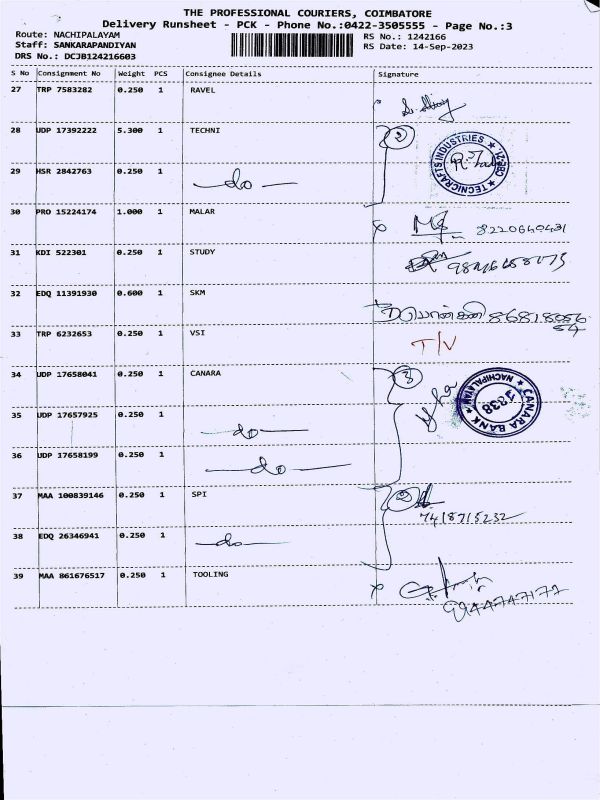 THE PROFESSIONAL COURIERS, COIMBATORE
Delivery Runsheet - PCK - Phone No.:0422-3505555 - Page No.:3
Route: NACHIPALAYAM RS No.: 1242166
Staff: SANKARAPANDIYAN RS Date: 14-Sep-2023
DRS No.: DCJB124216603
S No Consignment No Weight PCS Consignee Details Signature
27 TRP 7583282 0.250 1 RAVEL
28 UDP 17392222 5.300 1 TECHNI 2
TECNICRAFTS INDUSTRIES ★ CBE-21. ★
29 HSR 2842763 0.250 1 do
30 PRO 15224174 1.000 1 MALAR 8220640431
31 KDI 522301 0.250 1 STUDY
32 EDQ 11391930 0.600 1 SKM
33 TRP 6232653 0.250 1 VSI T/V
34 UDP 17658041 0.250 1 CANARA 3
CANARA BANK ★ NACHIPALAYAM ★ 7238
35 UDP 17657925 0.250 1 do
36 UDP 17658199 0.250 1 do
37 MAA 100839146 0.250 1 SPI 2
7418715232
38 EDQ 26346941 0.250 1 do
39 MAA 861676517 0.250 1 TOOLING
9944747177